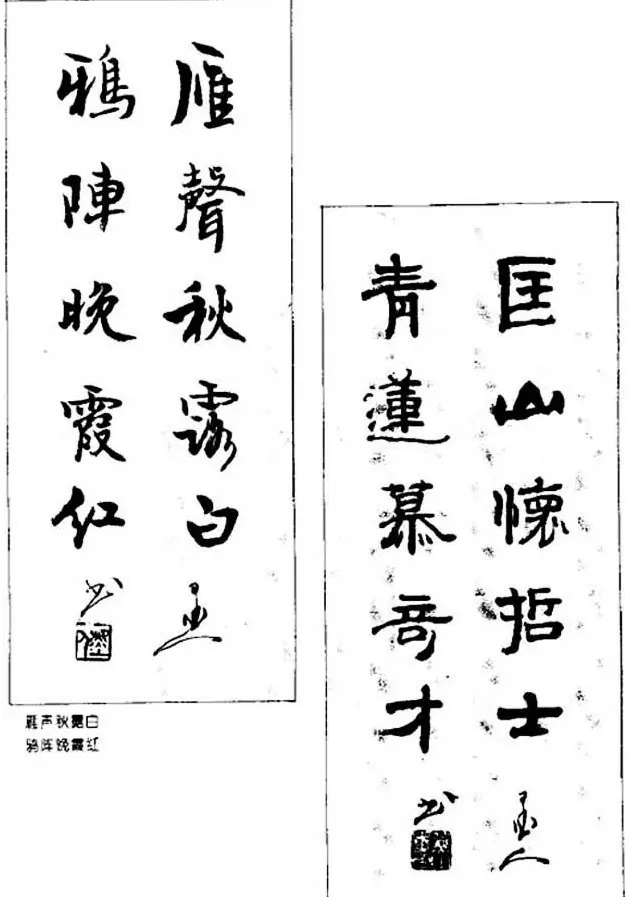 雁聲秋露白
鴉陣晚霞红
书
雁声秋露白
鸦阵晚霞红
匡山懷哲士
青蓮慕奇才
墨人
书